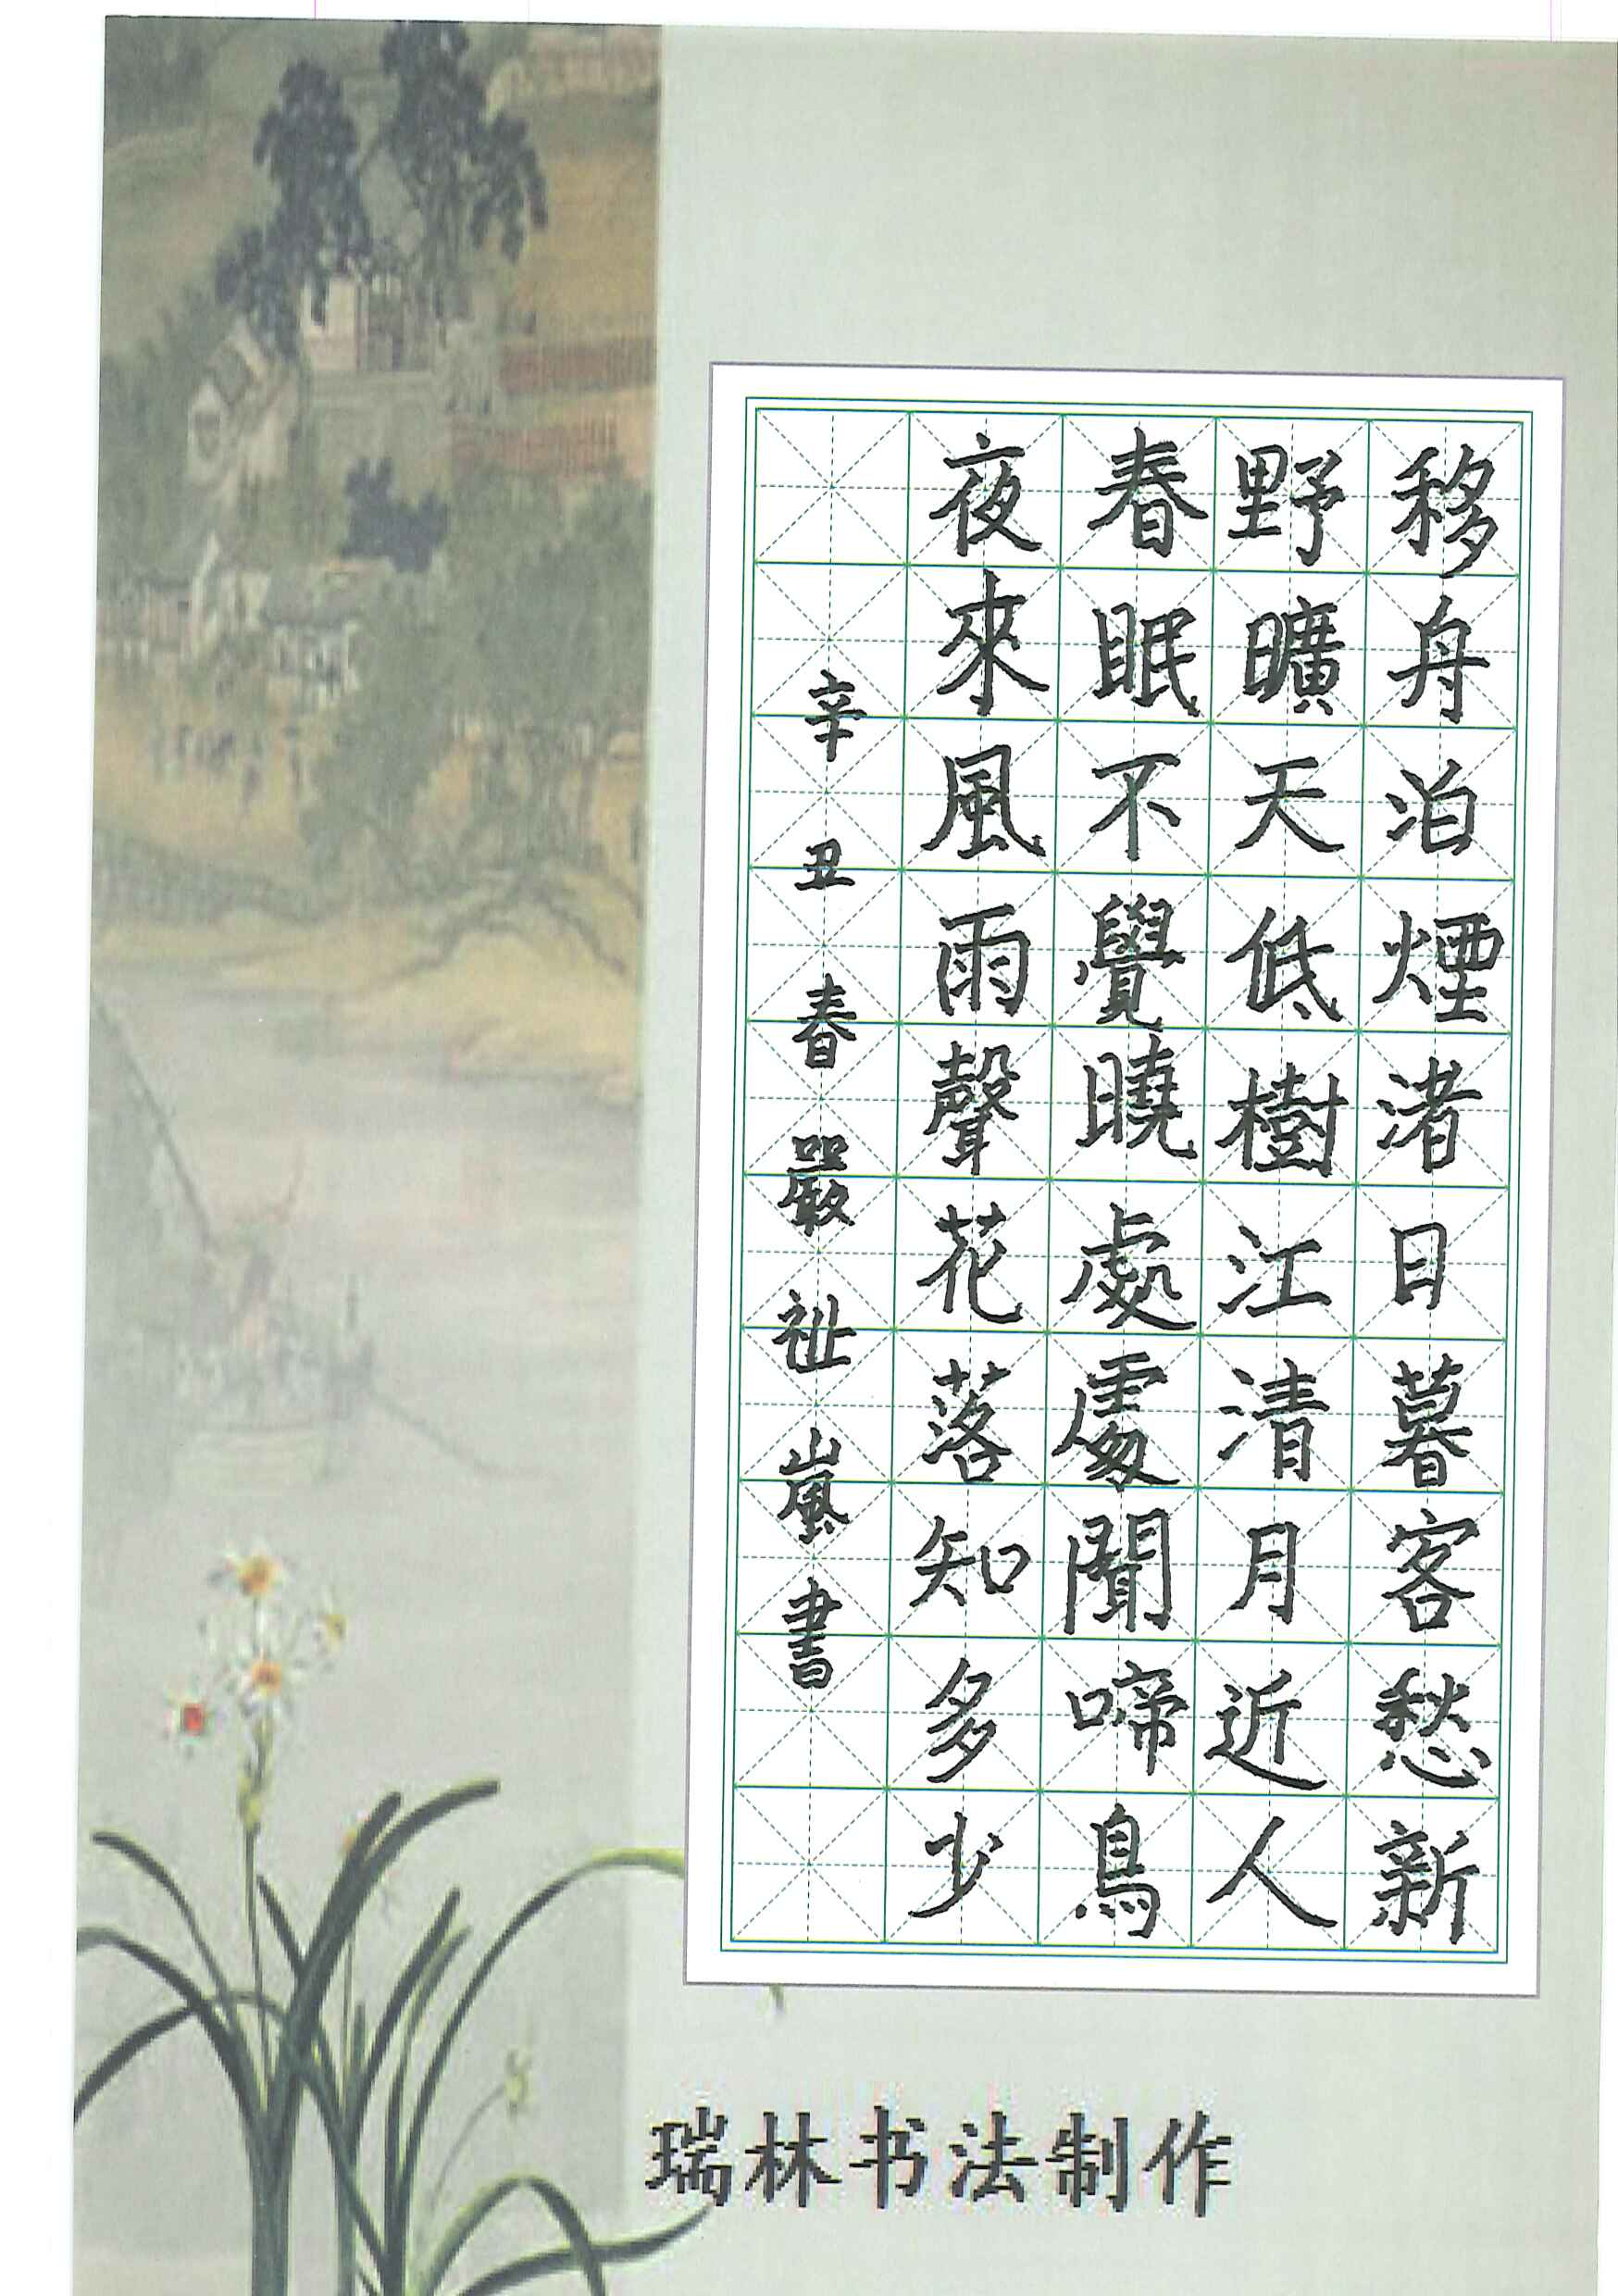 移舟泊煙渚日暮客愁新
野曠天低樹江清月近人
春眠不覺曉處處聞啼鳥
夜來風雨聲花落知多少
辛丑春嚴祉嵐書
瑞林书法制作